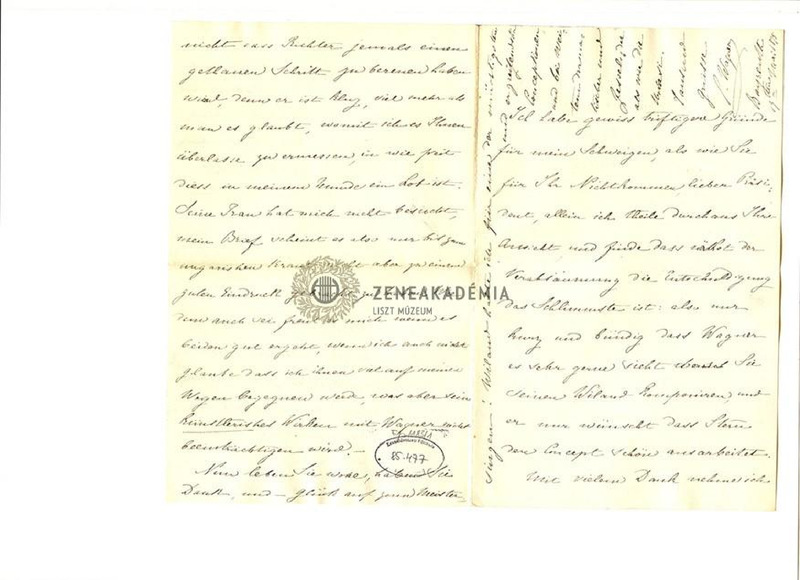 nicht dass Richter jemals einen
gethanen Schritt zu bereuen haben
wird, denn er ist klug, viel mehr als
man es glaubt, womit ich es Ihnen
überlasse zu ermessen, in wie weit
diess in meinem Munde ein Lob ist.
Seine Frau hat mich nicht besucht,
mein Brief scheint es also nur bis zum
ungarischen aber zu einem
guten Eindruck
dem auch sei freut es mich wenn es
beiden gut ergeht, wenn ich auch nicht
glaube dass ich ihnen viel auf meinen
Wegen begegnen werde, was aber sein
künstlerisches Wirken mit Wagner nicht
beeinträchtigen wird.-
Nun leben Sie wohl, haben Sie
Dank, und - glück auf zum Meister
85.477
ZENEAKADÉMIA
LISZT MÚZEUM
Ich habe gewiss triftigere Gründe
für mein Schweigen, als wie Sie
für Ihr Nichtkommen, lieber Präsi-
dent, allein ich theile durchaus Ihre
Ansicht und finde dass nächst der
Versäumung die Entschuldigung
das Schlimmste ist: als nur
kurz und bündig dass Wagner
es sehr gerne sieht Sie
seinen Wieland komponiren und
er nur wünscht dass Stern
den Concept schön ausarbeitet.
Mit vielem Dank nehme ich
singen! Wieland halte ich für eine der mächtigsten
und ergreifendsten
Conceptionen
und bin
Tausend
Grüsse
C. Wagner
Bayreuth